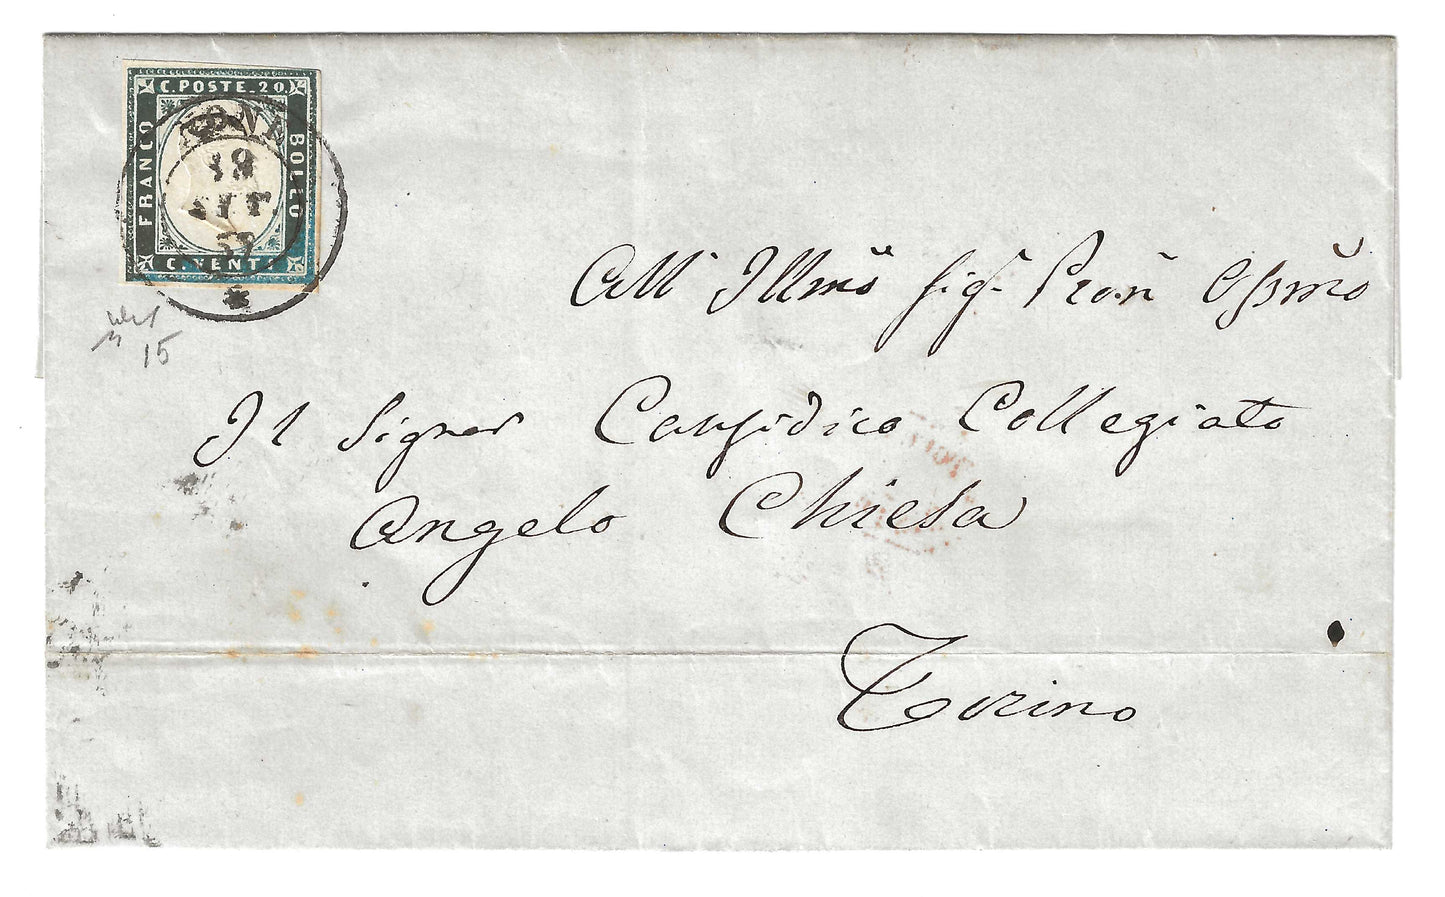 C. POSTE. 20.
FRANCO
BOLLO
C. VENTI
18
SET
15
All' Illmo Sig.r Pron Ossmo
Il Signor Causidico Collegiato
Angelo Chiesa
Torino